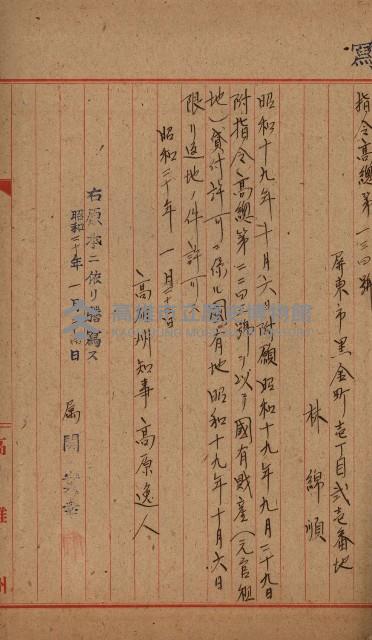 寫
指令高總第一三四號
屏東市黑金町壱丁目弐壱番地
林綿順
昭和十九年十月六日附願昭和十九年九月二十九日
附指令高總第二二四號ヲ以テ國有財産(元官租
地)貸付許可ニ係ル國有地昭和十九年十月六日
限リ返地ノ件許可
昭和二十年一月 日
高州知事高原逸人
右原本ニ依リ謄寫ス
昭和二十年一月 日
属
高雄市立歷史博物館
KAOHSIUNG MUSEUM OF HISTORY
高雄州